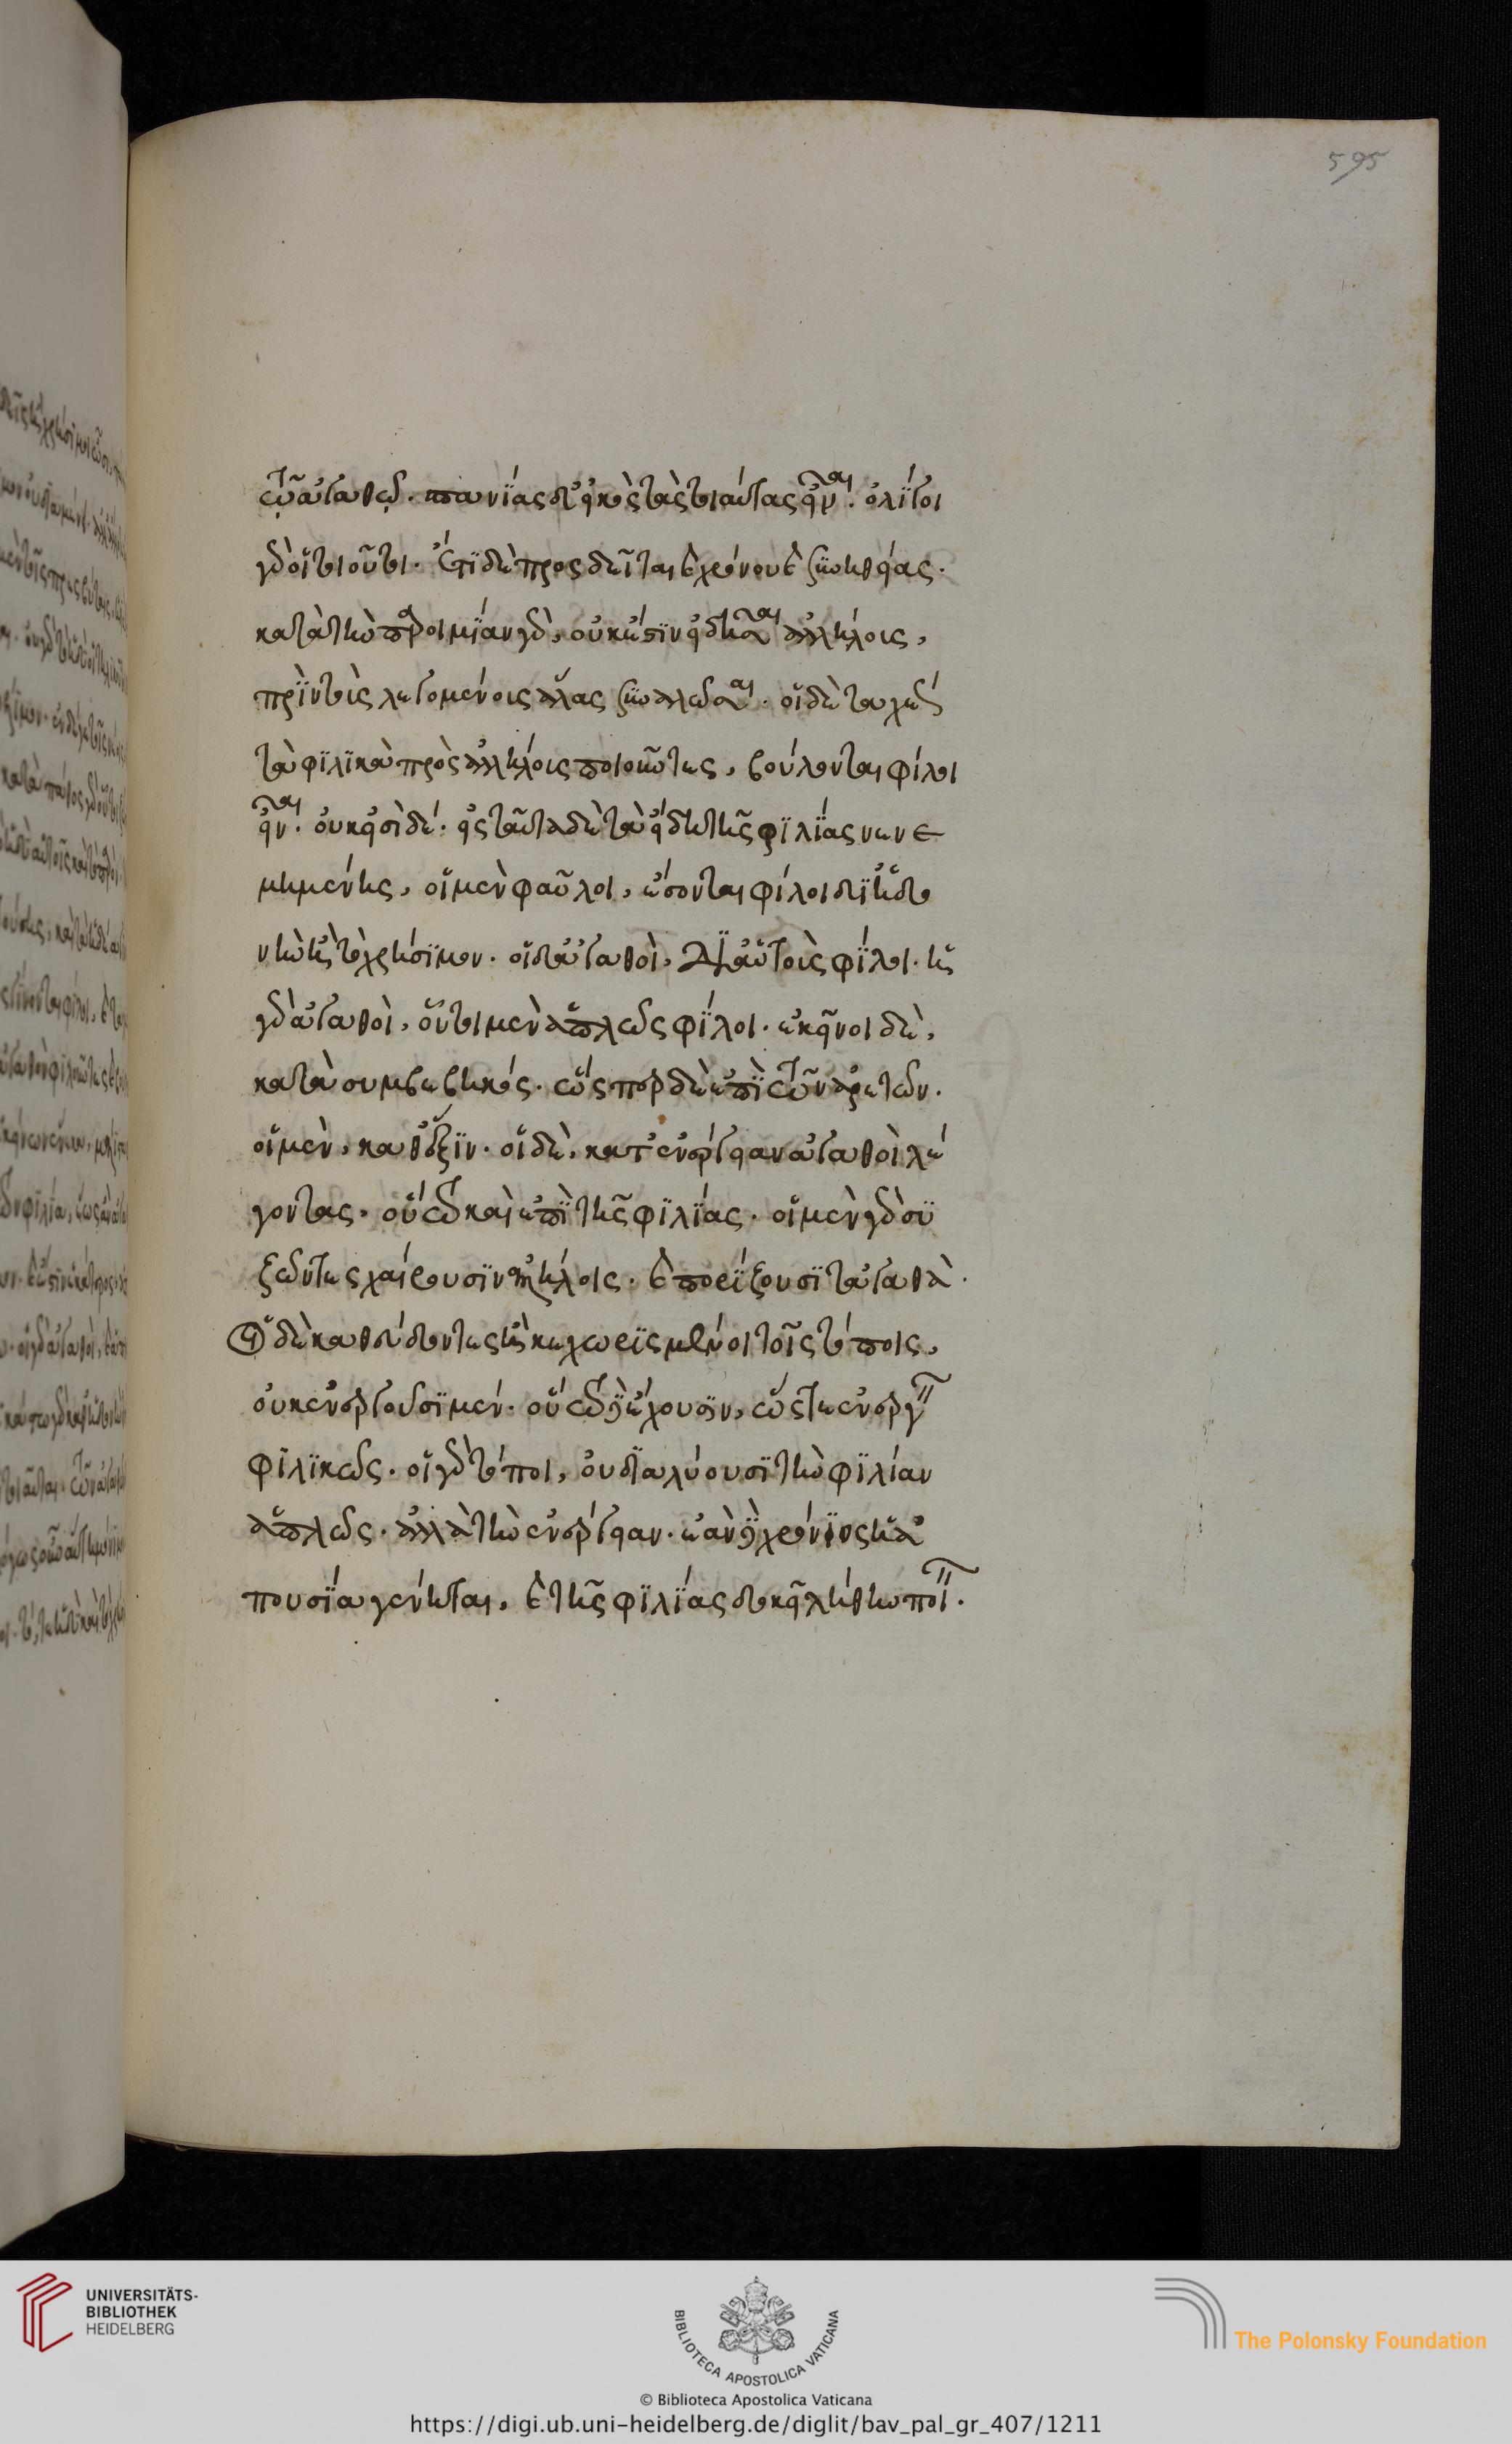 595
τῷ ἀγαθῷ. σπανίας δ' εἰκὸς τὰς τοιαύτας εἶναι. ὀλίγοι
γὰρ οἱ τοιοῦτοι. ἔτι δὲ προσδεῖται καὶ χρόνου καὶ συνηθείας.
κατὰ τὴν παροιμίαν γὰρ, οὐκ ἔστιν εἰδῆσαι ἀλλήλους,
πρὶν τοὺς λεγομένους ἅλας συναλῶσαι. οἱ δὲ ταχέως
τὰ φιλικὰ πρὸς ἀλλήλους ποιοῦντες, βούλονται φίλοι
εἶναι. οὐκ εἰσὶ δέ. εἰς ταῦτα δὲ τὰ εἴδη τῆς φιλίας νενε
μημένης, οἱ μὲν φαῦλοι, ἔσονται φίλοι δι' ἡδο
νὴν ἢ τὸ χρήσιμον. οἱ δ' ἀγαθοὶ, δι' αὑτοὺς φίλοι. ᾗ
γὰρ ἀγαθοὶ, οὗτοι μὲν ἁπλῶς φίλοι. ἐκεῖνοι δὲ,
κατὰ συμβεβηκός. ὥσπερ δὲ ἐπὶ τῶν ἀρετῶν.
οἱ μὲν, καθ' ἕξιν. οἱ δὲ, κατ' ἐνέργειαν ἀγαθοὶ λέ
γονται. οὕτω καὶ ἐπὶ τῆς φιλίας. οἱ μὲν γὰρ συ
ζῶντες χαίρουσιν ἀλλήλοις. καὶ πορίζουσι τἀγαθά.
οἱ δὲ καθεύδοντες ἢ κεχωρισμένοι τοῖς τόποις,
οὐκ ἐνεργοῦσι μέν. οὕτω δὲ ἔχουσιν, ὥστε ἐνεργεῖν
φιλικῶς. οἱ γὰρ τόποι, οὐ διαλύουσι τὴν φιλίαν
ἁπλῶς. ἀλλὰ τὴν ἐνέργειαν. ἐὰν δὲ χρόνιος ἡ ἀ
πουσία γένηται, καὶ τῆς φιλίας δοκεῖ λήθην ποιεῖν.
UNIVERSITÄTS-
BIBLIOTHEK
HEIDELBERG
BIBLIOTECA APOSTOLICA VATICANA
The Polonsky Foundation
© Biblioteca Apostolica Vaticana
https://digi.ub.uni-heidelberg.de/diglit/bav_pal_gr_407/1211